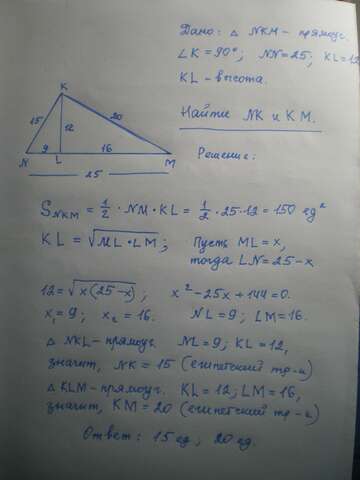 Дано: △ NKM - прямоуг.
∠K = 90°; NN = 25; KL = 12
KL - высота.
Найти NK и KM.
K
15
20
12
9
16
N
L
M
25
Решение:
S NKM = 1/2 · NM · KL = 1/2 · 25 · 12 = 150 ед²
KL = √ML · LM; Пусть ML = x,
тогда LN = 25 - x
12 = √x(25 - x); x² - 25x + 144 = 0.
x₁ = 9; x₂ = 16. NL = 9; LM = 16.
△ NKL - прямоуг. NL = 9; KL = 12,
значит, NK = 15 (египетский тр-к)
△ KLM - прямоуг. KL = 12; LM = 16,
значит, KM = 20 (египетский тр-к)
Ответ: 15 ед; 20 ед.